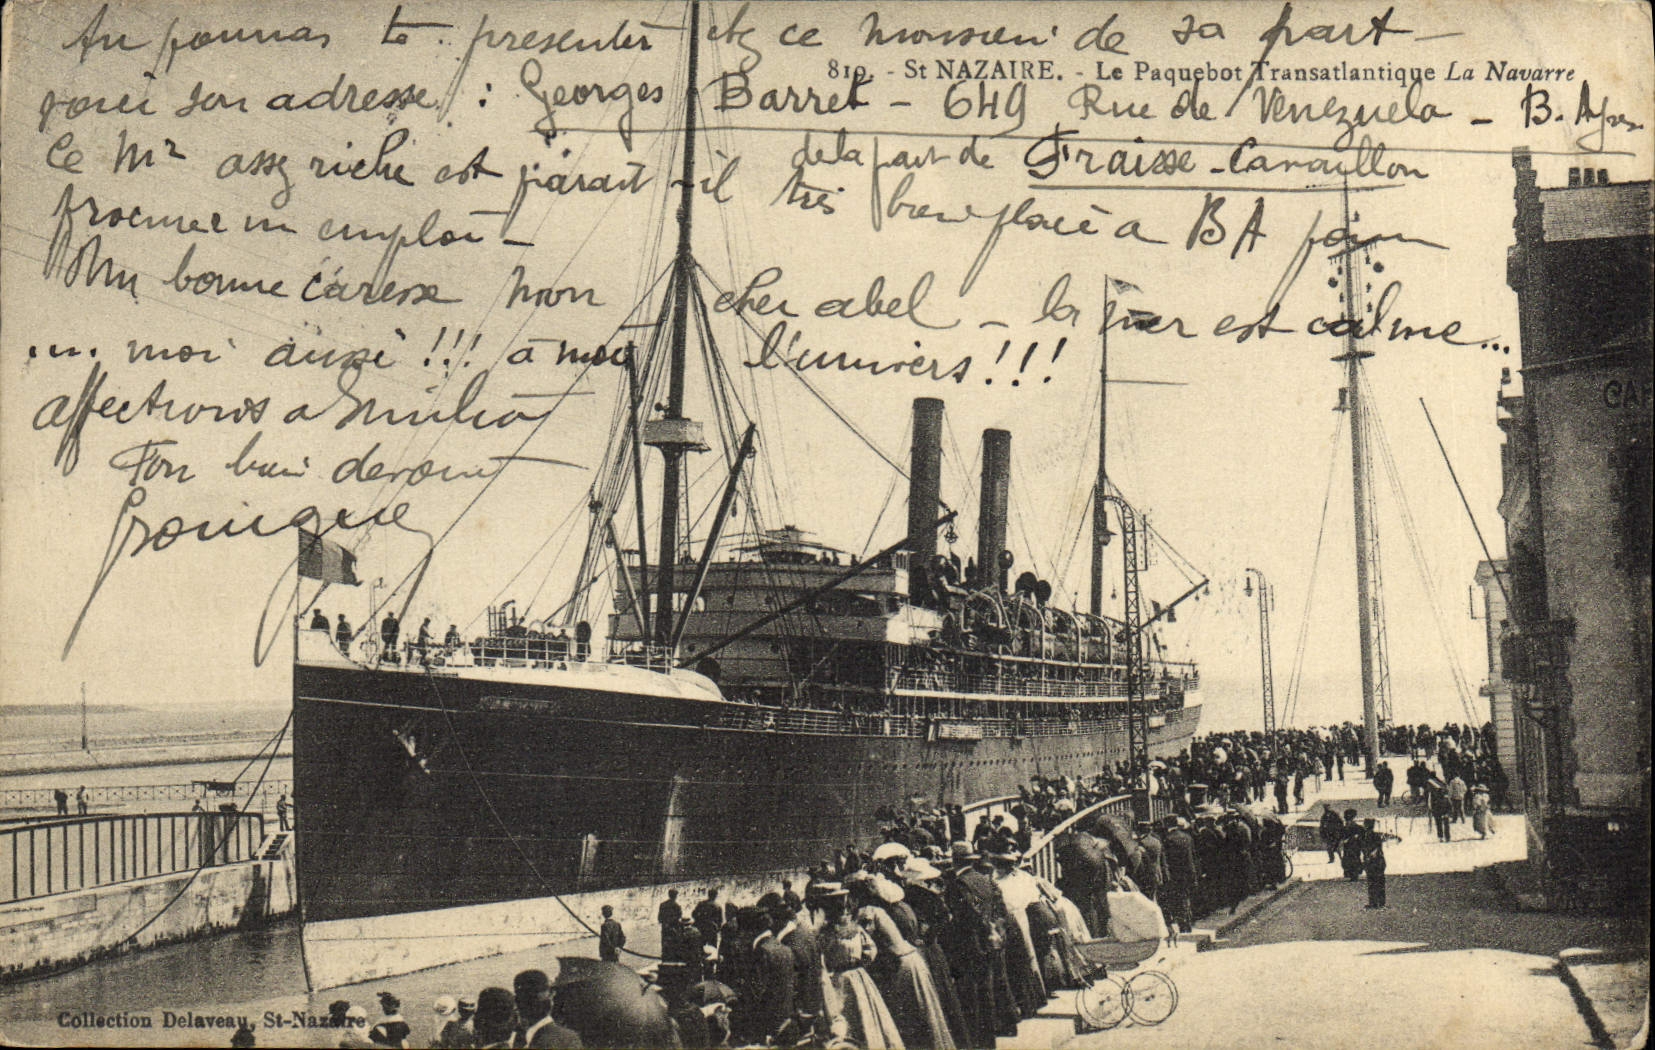 Tu pourras te présenter chez ce monsieur de sa part -
819. - St NAZAIRE. - Le Paquebot Transatlantique La Navarre
voici son adresse : Georges Barret - 649 Rue de Venezuela - B. Ayres
de la part de Fraisse - Cavaillon
Ce Mr assez riche est paraît-il très bien placé à BA pour
procurer un emploi -
Une bonne caresse mon cher abel - la mer est calme...
... moi aussi !!! à moi l'univers !!!
affections a Emilie
Ton bien
CAF
Collection Delaveau, St-Nazaire